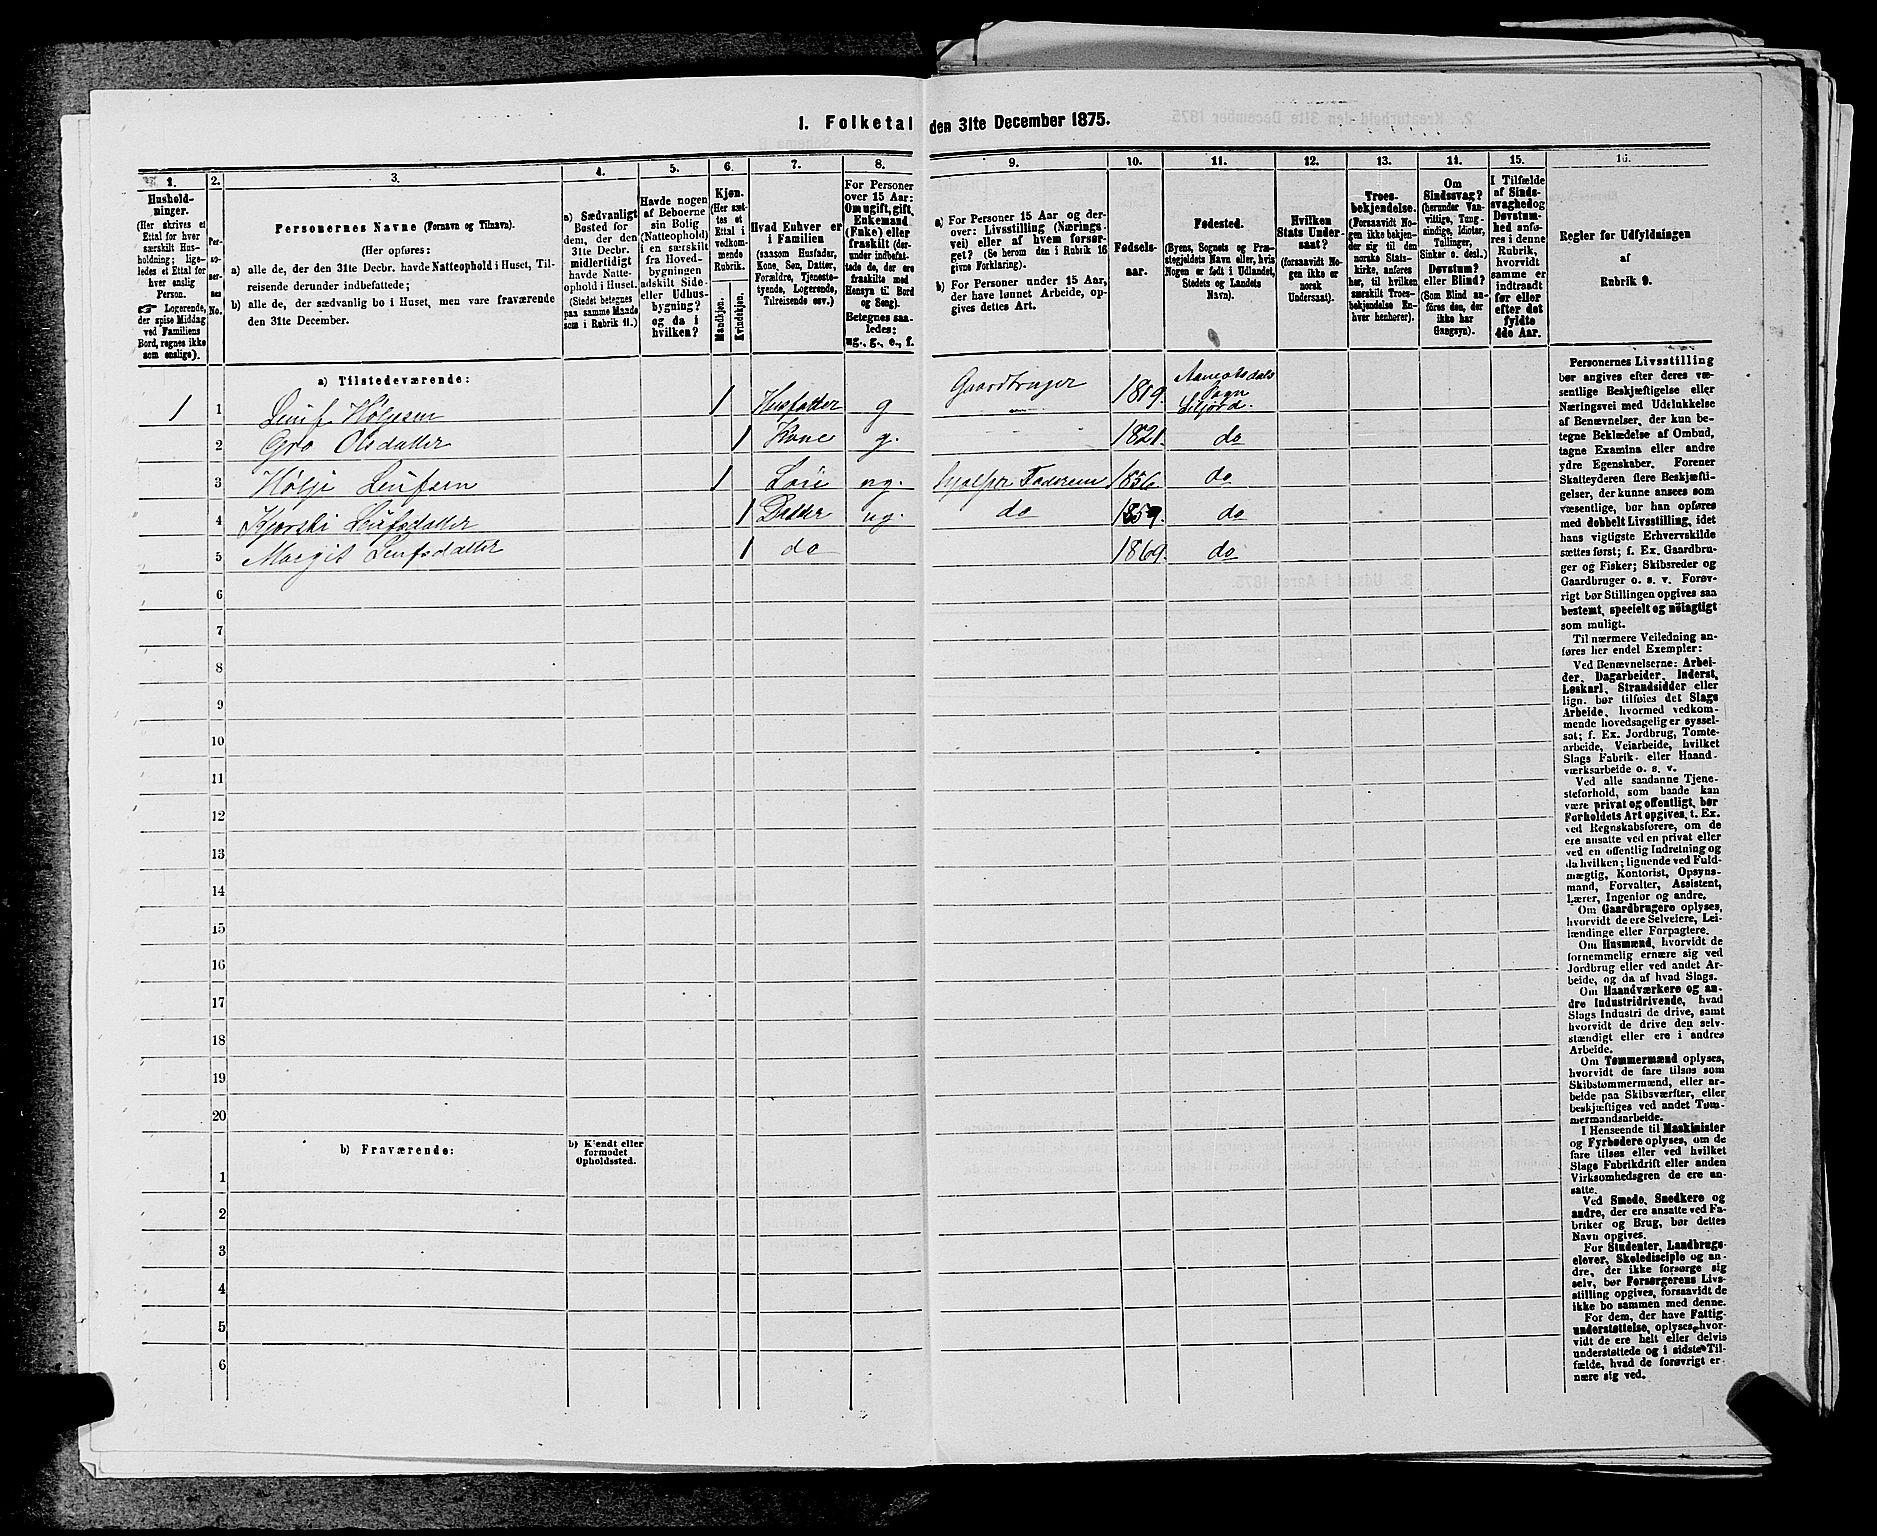 1. Folketal den 31te December 1875.
1.
Hushold-
ninger.
(Her skrives et
Ettal for hver
særskilt Hus-
holdning; lige-
ledes et Ettal for
hver enslig
Person.
☞ Logerende,
der spise Middag
ved Familiens
Bord, regnes ikke
som enslige).
2.
Per-
so-
ner-
nes
No.
3.
Personernes Navne (Fornavn og Tilnavn).
(Her opføres:
a) alle de, der den 31te Decbr. havde Natteophold i Huset, Til-
reisende derunder indbefattede;
b) alle de, der sædvanlig bo i Huset, men vare fraværende
den 31te December.
4.
a) Sædvanligt
Bosted for
dem, der den
31te Decbr.
midlertidigt
havde Natte-
ophold i Huset.
(Stedet betegnes
paa samme Maade
som i Rubrik 11.)
5.
Havde nogen
af Beboerne
sin Bolig
(Natteophold)
i en særskilt
fra Hoved-
bygningen
adskilt Side-
eller Udhus-
bygning?
og da i
hvilken?
6.
Kjøn.
(Her sæt-
tes et
Ettal i
vedkom-
mende
Rubrik.
Mandkjøn.
Kvindekjøn.
7.
Hvad Enhver er
i Familien
(saasom Husfader,
Kone, Søn, Datter,
Forældre, Tjeneste-
tyende, Logerende,
Tilreisende osv.)
8.
For Personer
over 15 Aar:
Om ugift, gift,
Enkemand
(Enke) eller
fraskilt (der-
under indbefat-
tede de, der ere
fraskilte med
Hensyn til Bord
og Seng).
Betegnes saa-
ledes:
ug., g., e., f.
9.
a) For Personer 15 Aar og der-
over: Livsstilling (Nærings-
vei) eller af hvem forsør-
get? (Se herom den i Rubrik 16
givne Forklaring).
b) For Personer under 15 Aar,
der have lønnet Arbeide, op-
gives dettes Art.
10.
Fødsels-
aar.
11.
Fødested.
(Byens, Sognets og Præ-
stegjeldets Navn eller, hvis
Nogen er født i Udlandet,
Stedets og Landets
Navn).
12.
Hvilken
Stats Under-
saat?
(forsaavidt No-
gen ikke er
norsk
Undersaat).
13.
Troes-
bekjendelse.
(Forsaavidt No-
gen ikke bekjen-
der sig til den
norske Stats-
kirke, anføres
her, til hvilken
særskilt Troes-
bekjendelse En-
hver henhører).
14.
Om
Sindssvag?
(herunder Van-
vittige, Tung-
sindige, Idioter,
Tullinger,
Sinker o. desl.)
Døvstum?
eller Blind?
(Som Blind an-
føres den, der
ikke har
Gangsyn).
15.
I Tilfælde
af Sinds-
svaghed og
Døvstum-
hed anfø-
res i denne
Rubrik,
hvorvidt
samme er
indtraadt
før eller
efter det
fyldte
4de Aar.
16.
Regler for Udfyldningen
af
Rubrik 9.
a) Tilstedeværende:
1 1 Leuf Høljesen 1 Husfatter g Gaardbruger 1819. Aamotsdals Sogn Siljord.
2 Gro Olsdatter 1 Kone g. 1821. do
3 Hølje Leufsen 1 Søn ug. hjelper Faderen 1856 do
4 Kjersti Leufsdatter 1 Datter ug. do 1859. do
5 Margit Leufsdatter 1 do 1869. do
6
7
8
9
10
11
12
13
14
15
16
17
18
19
20
b) Fraværende:
b) Kjendt eller
formodet
Opholdssted.
1
2
3
4
5
6
Personernes Livsstilling
bør angives efter deres væ-
sentlige Beskjæftigelse eller
Næringsvei med Udelukkelse
af Benævnelser, der kun be-
tegne Beklædelse af Ombud,
tagne Examina eller andre
ydre Egenskaber. Forener
Skatteyderen flere Beskjæfti-
gelser, der kunne ansees som
væsentlige, bør han opføres
med dobbelt Livsstilling, idet
hans vigtigste Erhvervskilde
sættes først; f. Ex. Gaardbru-
ger og Fisker; Skibsreder og
Gaardbruger o. s. v. Forøv-
rigt bør Stillingen opgives saa
bestemt, specielt og nøiagtigt
som muligt.
Til nærmere Veiledning an-
føres her endel Exempler:
Ved Benævnelserne: Arbei-
der, Dagarbeider, Inderst,
Løskarl, Strandsidder eller
lign. bør tilføies det Slags
Arbeide, hvormed vedkom-
mende hovedsagelig er syssel-
sat; f. Ex. Jordbrug, Tomte-
arbeide, Veiarbeide, hvilket
Slags Fabrik- eller Haand-
værksarbeide o. s. v.
Ved alle saadanne Tjene-
steforhold, som baade kan
være privat og offentligt, bør
Forholdets Art opgives, t. Ex.
ved Regnskabsførere, om de
ere ansatte ved en privat eller
ved en offentlig Indretning og
da hvilken; lignende ved Fuld-
mægtig, Kontorist, Opsyns-
mand, Forvalter, Assistent,
Lærer, Ingeniør og andre.
Om Gaardbrugere oplyses,
hvorvidt de ere Selveiere, Lei-
lændinge eller Forpagtere.
Om Husmænd, hvorvidt de
fornemmelig ernære sig ved
Jordbrug eller ved andet Ar-
beide, og da af hvad Slags.
Om Haandværkere og an-
dre Industridrivende, hvad
Slags Industri de drive, samt
hvorvidt de drive den selv-
stændigt eller ere i andres
Arbeide.
Om Tømmermænd oplyses,
hvorvidt de fare tilsøs som
Skibstømmermænd, eller ar-
beide paa Skibsværfter, eller
beskjæftiges ved andet Tøm-
mermandsarbeide.
I Henseende til Maskinister
og Fyrbødere oplyses, om de
fare tilsøs eller ved hvilket
Slags Fabrikdrift eller anden
Virksomhedsgren de ere an-
satte.
Ved Smede, Snedkere og
andre, der ere ansatte ved Fa-
briker og Brug, bør dettes
Navn opgives.
For Studenter, Landbrugs-
elever, Skoledisciple og an-
dre, der ikke forsørge sig
selv, bør Forsørgerens Livs-
stilling opgives, forsaavidt de
ikke bo sammen med denne.
For dem, der have Fattig-
understøttelse, oplyses, hvor-
vidt de ere helt eller delvis
understøttede og i sidste Til-
fælde, hvad de forøvrigt er-
nære sig ved.